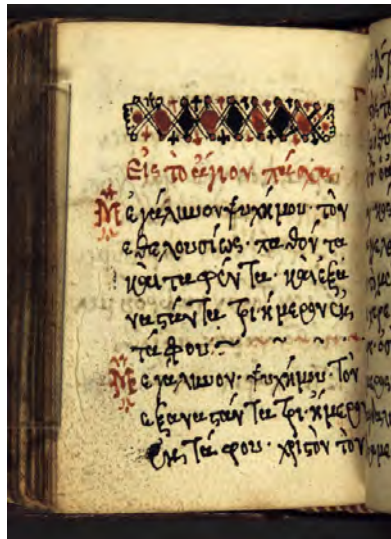 Εἰς τὸ ἅγιον πάσχα.
Μεγάλυνον ψυχή μου· τὸν
ἐθελουσίως· παθόντα
καὶ ταφέντα· καὶ ἐξα
ναστάντα τριήμερον ἐκ
τάφου
Μεγάλυνον· ψυχή μου· τὸν
ἐξαναστάντα τριήμερον
ἐκ τάφου· χριστὸν τὸν